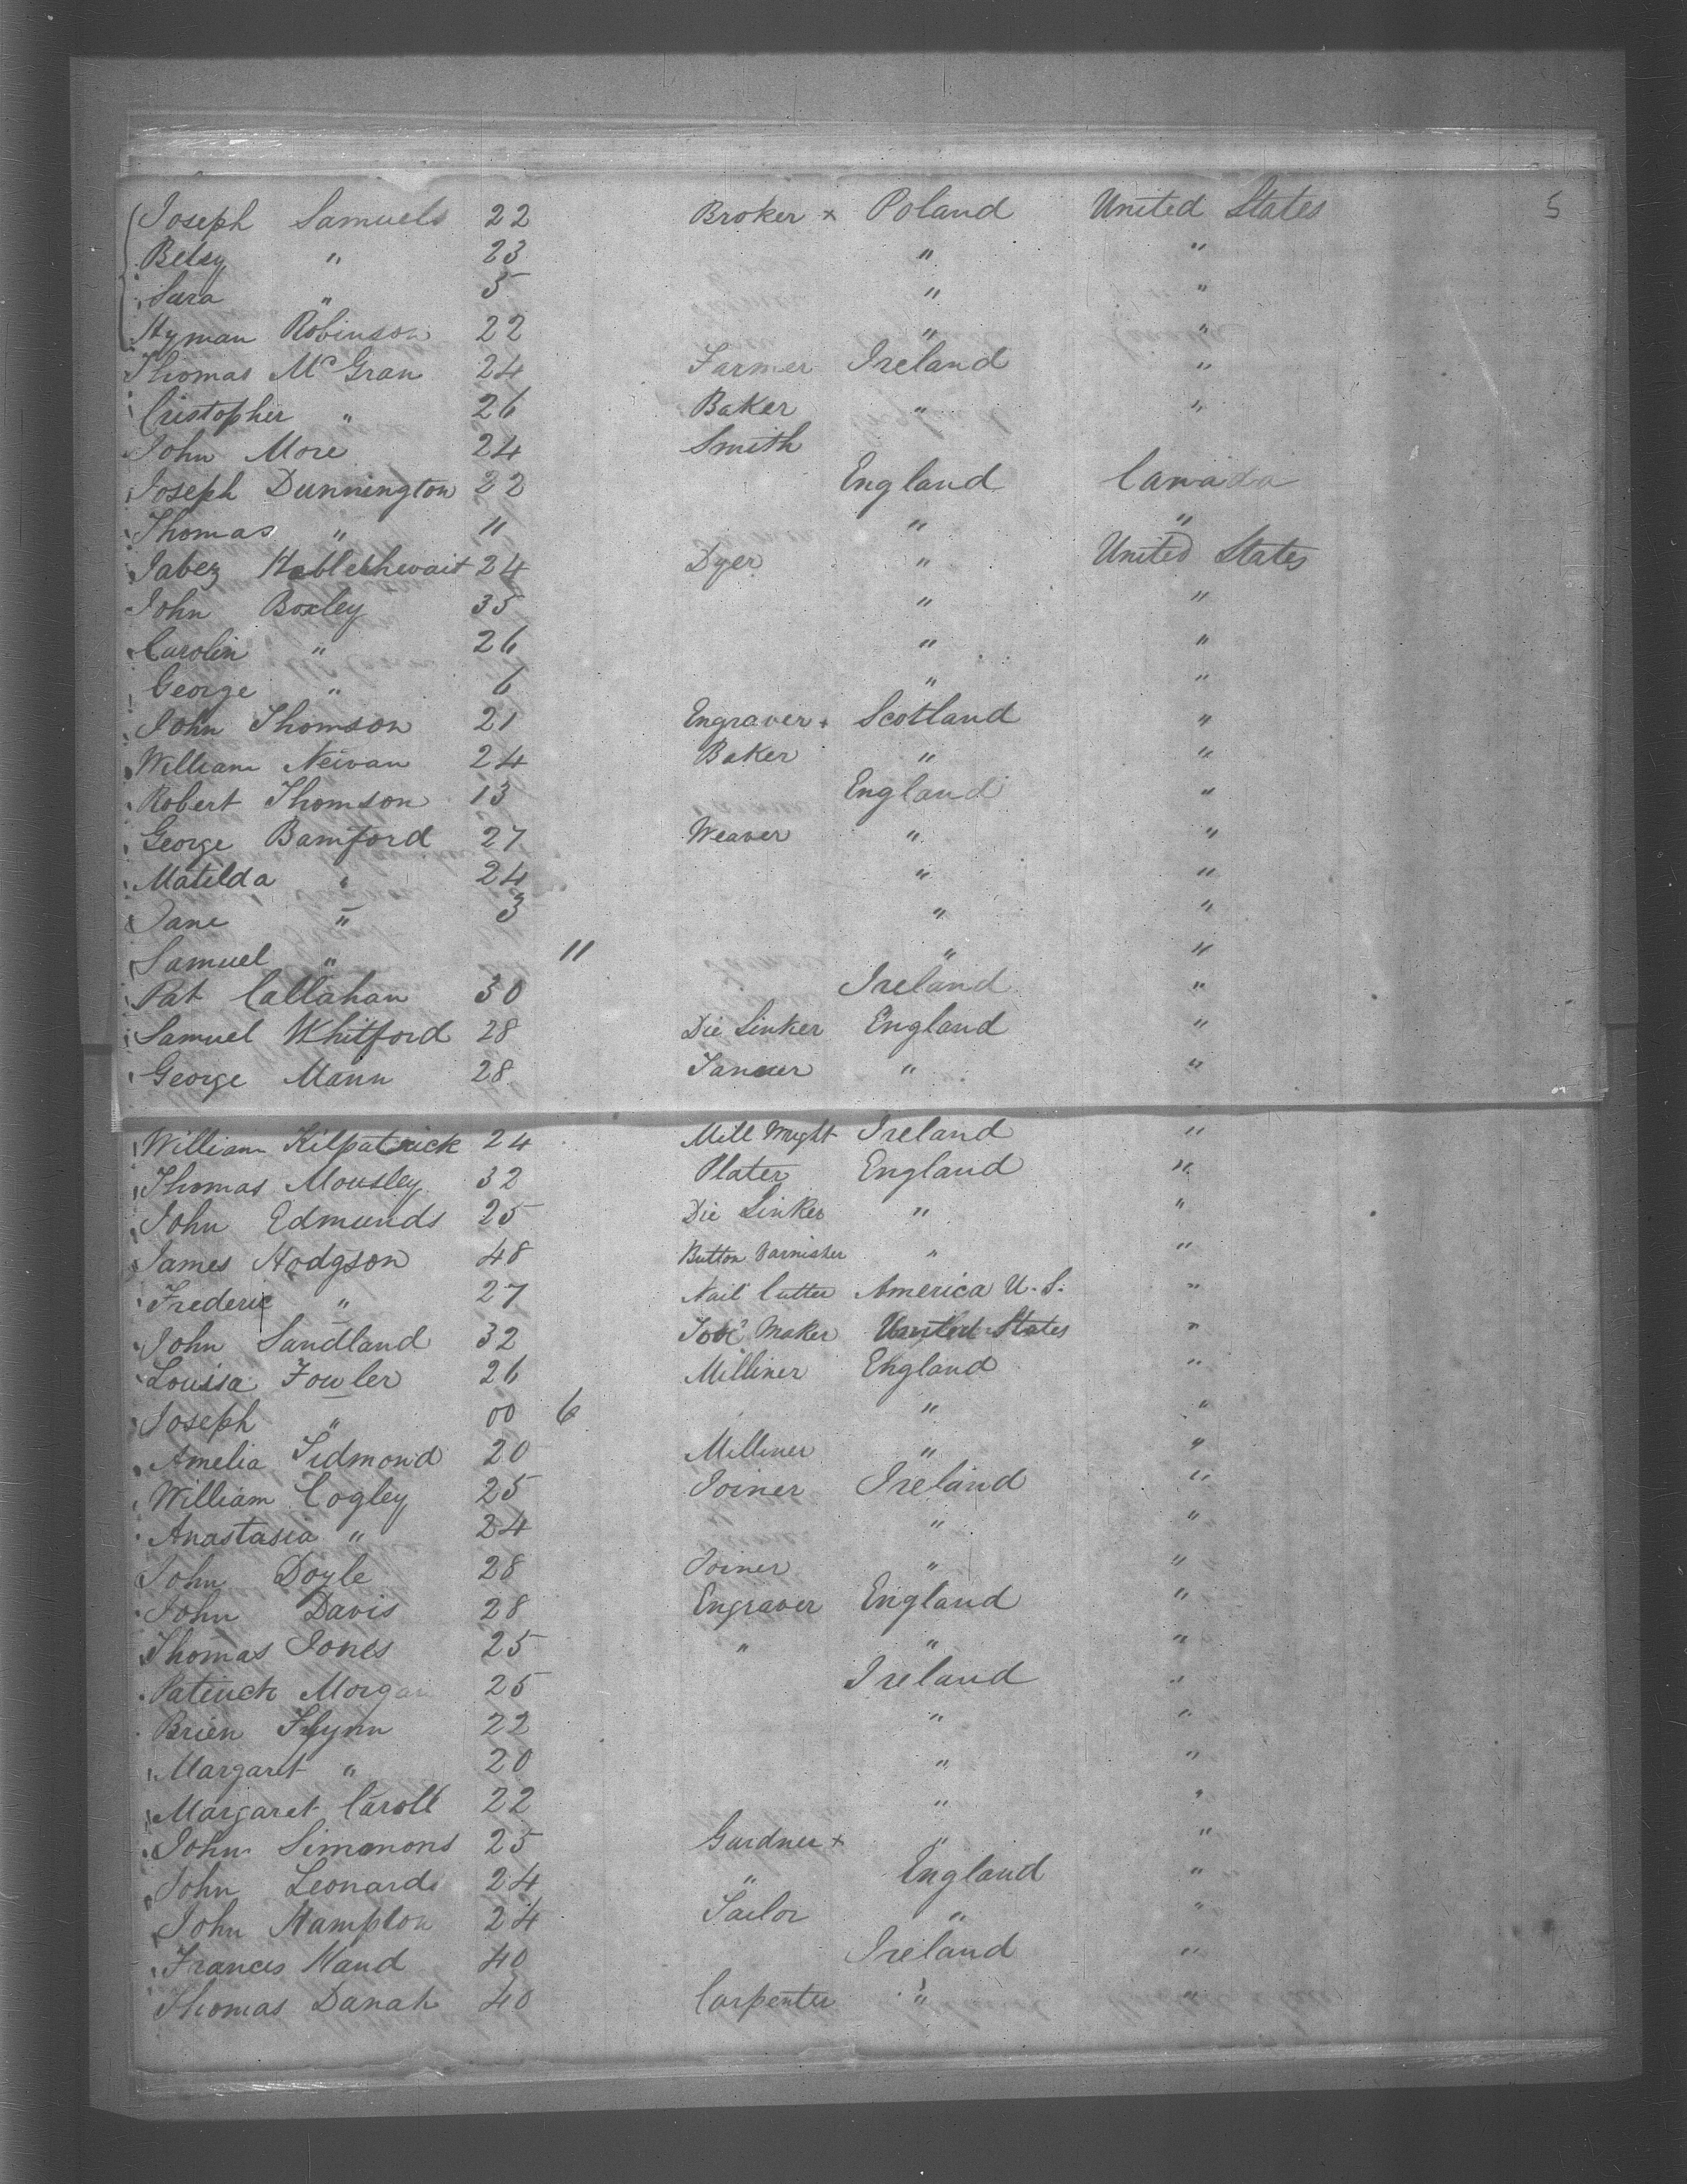 Joseph Samuels 22 Broker x Poland United States 5
Betsy " 23 " "
Sara " 5 " "
Hyman Robinson 22 " "
Thomas McGran 24 Farmer Ireland "
Cristopher " 26 Baker " "
John More 24 Smith
Joseph Dunnington 22 England Canada
Thomas " 11 " "
Jabez 24 Dyer " United States
John Boxley 35 " "
Carolin " 26 " "
George " 6 " "
John Thomson 21 Engraver + Scotland "
William Neivan 24 Baker " "
Robert Thomson 13 England "
George Bamford 27 Weaver " "
Matilda " 24 " "
Jane " 3 " "
Samuel " 11 " "
Pat Callahan 30 Ireland "
Samuel Whitford 28 Die Sinker England "
George Mann 28 Tanner " "
William Kilpatrick 24 Mill Wright Ireland "
Thomas Mousley 32 Plater England "
John Edmunds 25 Die Sinker " "
James Hodgson 48 Button Varnisher " "
Frederic " 27 Nail Cutter America U. S. "
John Sandland 32 Maker United States "
Louisa Fowler 26 Milliner England "
Joseph " 00 6 " "
Amelia Tidmond 20 Milliner " "
William Cogley 25 Joiner Ireland "
Anastasia " 24 " "
John Doyle 28 Joiner " "
John Davis 28 Engraver England "
Thomas Jones 25 " " "
Patrick Morgan 25 Ireland "
Brien Flynn 22 " "
Margaret " 20 " "
Margaret Caroll 22 " "
John Simmons 25 Gardner x " "
John Leonard 24 " England "
John Hampton 24 Tailor " "
Frances Hand 40 Ireland "
Thomas Danah 40 Carpenter " "